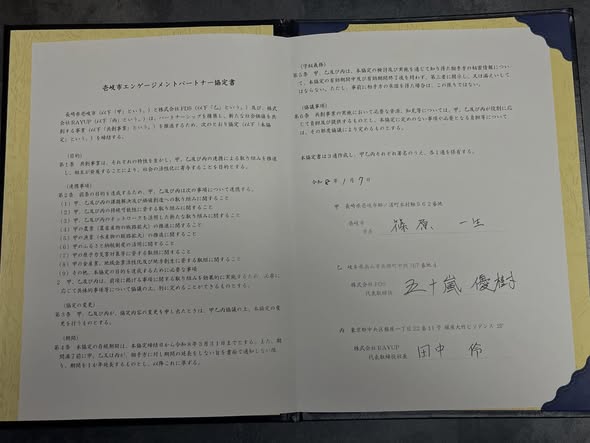 壱岐市エンゲージメントパートナー協定書
長崎県壱岐市（以下「甲」という。）と株式会社FDS（以下「乙」という。）及び、株式
会社RAYUP（以下「丙」という。）は、パートナーシップを構築し、新たな社会価値を共
創する事業（以下「共創事業」という。）を推進するため、次のとおり協定（以下「本協
定」という。）を締結する。
（目的）
第1条 共創事業は、それぞれの特性を生かし、甲、乙及び丙の連携による取り組みを推進
し、相互が発展することにより、社会の活性化に寄与することを目的とする。
（連携事項）
第2条 前条の目的を達成するため、甲、乙及び丙は次の事項について連携する。
（1）甲、乙及び丙の課題解決及び価値創造への取り組みに関すること
（2）甲、乙及び丙の持続可能性に資する取り組みに関すること
（3）甲、乙及び丙のネットワークを活用した新たな取り組みに関すること
（4）甲の農業（農畜産物の販路拡大）の推進に関すること
（5）甲の漁業（水産物の販路拡大）の推進に関すること
（6）甲のふるさと納税制度の活用に関すること
（7）甲の子育て支援対策等に資する取り組みに関すること
（8）甲の全産業、地域企業活性化及び地方創生に資する取り組みに関すること
（9）その他、本協定の目的を達成するために必要な事項
2 甲、乙及び丙は、前項に掲げる事項に関する取り組みを効果的に実施するため、必要に
応じて具体的事項について協議の上、別に定めることができるものとする。
（協定の変更）
第3条 甲、乙及び丙が、協定内容の変更を申し出たときは、甲乙丙協議の上、本協定の変
更を行うものとする。
（期間）
第4条 本協定の有効期間は、本協定締結日から令和8年3月31日までとする。また、期
間満了前に甲、乙又は丙が、相手方に対し期間の延長をしない旨を書面で通知しない限
り、期間を1か年延長するものとし、以降これに準ずる。
（守秘義務）
第5条 甲、乙及び丙は、本協定の検討及び実施を通じて知り得た相手方の秘密情報につい
て、本協定の有効期間中及び有効期間終了後を問わず、第三者に開示し、又は漏えいして
はならない。ただし、事前に相手方の承諾を得た場合は、この限りではない。
（協議事項）
第6条 共創事業の実施において必要な資源、知見等については、甲、乙及び丙が役割に応
じて自助及び提供するものとし、本協定に定めのない事項や必要となる負担等について
は、その都度協議により定めるものとする。
本協定書は3通作成し、甲乙丙それぞれ署名のうえ、各1通を保有する。
令和 8 年 1 月 7 日
甲 長崎県壱岐市郷ノ浦町本村触562番地
壱岐市
市長 篠原 一生
乙 岐阜県高山市
株式会社FDS
代表取締役 五十嵐 優樹
丙 東京都中央区銀座一丁目22番11号 銀座大竹ビジデンス 2F
株式会社RAYUP
代表取締役社長 田中 伶